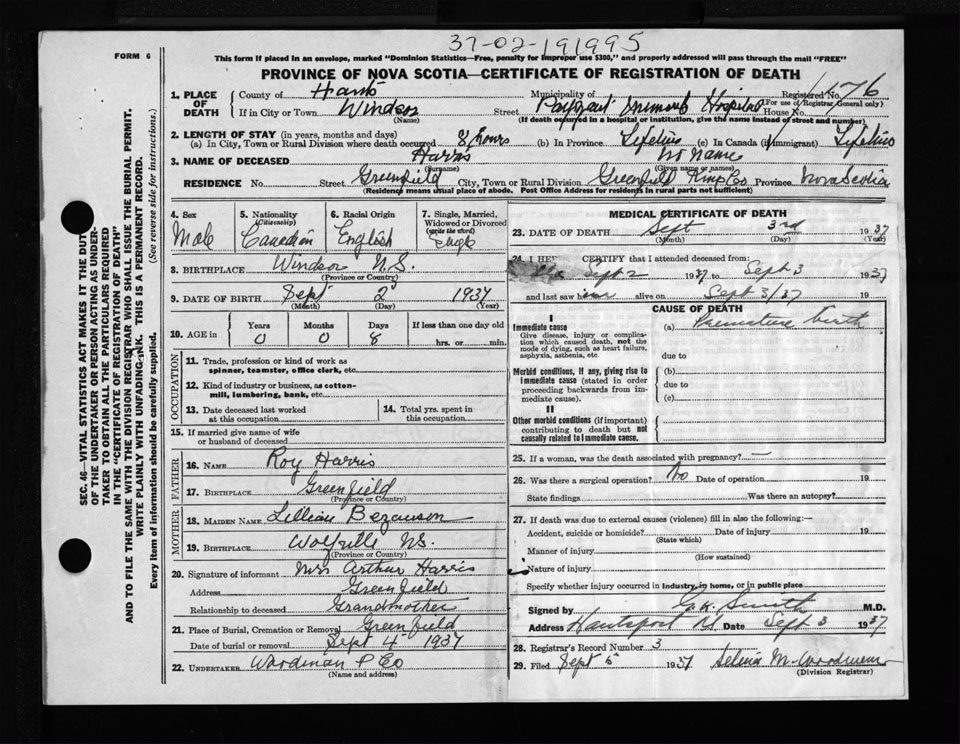 37-02-191995
FORM 6
This form if placed in an envelope, marked "Dominion Statistics—Free, penalty for improper use $300," and properly addressed will pass through the mail "FREE"
PROVINCE OF NOVA SCOTIA—CERTIFICATE OF REGISTRATION OF DEATH
1. PLACE OF DEATH
County of Hants Municipality of Registered No. 176
(For use of Registrar General only)
If in City or Town Windsor Street Payzant Hospital House No.
(Name) (If death occurred in a hospital or institution, give the name instead of street and number)
2. LENGTH OF STAY (in years, months and days)
(a) In City, Town or Rural Division where death occurred 8 hours (b) In Province Lifetime (c) In Canada (if immigrant) Lifetime
3. NAME OF DECEASED Harris no name
(Surname) (Given name or names)
RESIDENCE No. Street Greenfield City, Town or Rural Division Greenfield Kings Co Province Nova Scotia
(Residence means usual place of abode. Post Office Address for residents in rural parts not sufficient)
4. Sex
Male
5. Nationality
(Citizenship)
Canadian
6. Racial Origin
English
7. Single, Married, Widowed or Divorced
(write the word)
Single
8. BIRTHPLACE Windsor N.S.
(Province or Country)
9. DATE OF BIRTH Sept 2 1937
(Month) (Day) (Year)
10. AGE in
Years Months Days If less than one day old
0 0 8 hrs. or min.
OCCUPATION
11. Trade, profession or kind of work as
spinner, teamster, office clerk, etc.
12. Kind of industry or business, as cotton-
mill, lumbering, bank, etc.
13. Date deceased last worked
at this occupation
14. Total yrs. spent in
this occupation
15. If married give name of wife
or husband of deceased
FATHER
16. NAME Roy Harris
17. BIRTHPLACE Greenfield
(Province or Country)
MOTHER
18. MAIDEN NAME Lillian Bezanson
19. BIRTHPLACE Wolfville NS.
(Province or Country)
20. Signature of informant Mrs Arthur Harris
Address Greenfield
Relationship to deceased Grandmother
21. Place of Burial, Cremation or Removal Greenfield
Date of burial or removal Sept 4 1937
22. UNDERTAKER Woodman & Co
(Name and address)
MEDICAL CERTIFICATE OF DEATH
23. DATE OF DEATH Sept 3rd 1937
(Month) (Day) (Year)
24. I HEREBY CERTIFY that I attended deceased from:
Sept 2 1937 to Sept 3 1937
and last saw him alive on Sept 3/37 19
CAUSE OF DEATH
I
Immediate cause
Give disease, injury or complica-
tion which caused death, not the
mode of dying, such as heart failure,
asphyxia, asthenia, etc.
(a) Premature birth
due to
Morbid conditions, if any, giving rise to
immediate cause (stated in order
proceeding backwards from im-
mediate cause).
(b)
due to
(c)
II
Other morbid conditions (if important)
contributing to death but not
causally related to immediate cause.
25. If a woman, was the death associated with pregnancy? —
26. Was there a surgical operation? No Date of operation 19
State findings Was there an autopsy?
27. If death was due to external causes (violence) fill in also the following:—
Accident, suicide or homicide? Date of injury 19
(State which)
Manner of injury
(How sustained)
Nature of injury
Specify whether injury occurred in industry, in home, or in public place
Signed by G.K. Smith M.D.
Address Hantsport NS Date Sept 3 1937
28. Registrar's Record Number 3
29. Filed Sept 5 1937 Selina M. Woodman
(Division Registrar)
SEC. 46—VITAL STATISTICS ACT MAKES IT THE DUTY
OF THE UNDERTAKER OR PERSON ACTING AS UNDER-
TAKER TO OBTAIN ALL THE PARTICULARS REQUIRED
IN THE "CERTIFICATE OF REGISTRATION OF DEATH"
AND TO FILE THE SAME WITH THE DIVISION REGISTRAR WHO SHALL ISSUE THE BURIAL PERMIT.
WRITE PLAINLY WITH UNFADING INK. THIS IS A PERMANENT RECORD.
Every item of information should be carefully supplied. (See reverse side for instructions.)